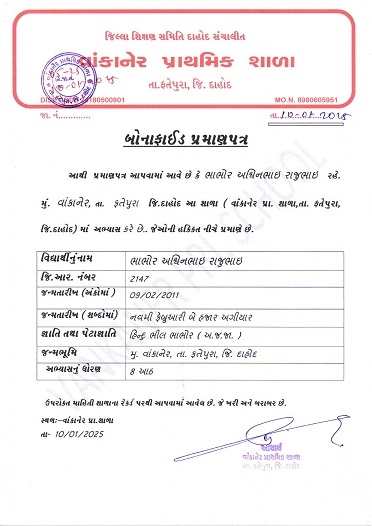 જિલ્લા શિક્ષણ સમિતિ દાહોદ સંચાલીત
વાંકાનેર પ્રાથમિક શાળા
તા.ફતેપુરા, જિ. દાહોદ
MO.N. 8980605951
જા. નં.............
તા. 10-01-2025
બોનાફાઈડ પ્રમાણપત્ર
આથી પ્રમાણપત્ર આપવામાં આવે છે કે ભાભોર અશ્વિનભાઇ રાજુભાઇ રહે.
મું. વાંકાનેર, તા. ફતેપુરા જિ.દાહોદ આ શાળા ( વાંકાનેર પ્રા. શાળા,તા. ફતેપુરા,
જિ.દાહોદ) માં અભ્યાસ કરે છે. જેઓની હકિકત નીચે પ્રમાણે છે.
વિદ્યાર્થીનુંનામ ભાભોર અશ્વિનભાઇ રાજુભાઇ
જિ.આર. નંબર 2147
જન્મતારીખ (અંકોમાં ) 09/02/2011
જન્મતારીખ ( શબ્દોમાં ) નવમી ફેબ્રુઆરી બે હજાર અગીયાર
જ્ઞાતિ તથા પેટાજ્ઞાતિ હિન્દુ ભીલ ભાભોર ( અ.જ.જા. )
જન્મભૂમિ મુ. વાંકાનેર, તા. ફતેપુરા, જિ. દાહોદ
અભ્યાસનું ધોરણ 8 આઠ
ઉપરોક્ત માહિતી શાળાના રેકર્ડ પરથી આપવામાં આવેલ છે. જે ખરી અને બરાબર છે.
સ્થળ:-વાંકાનેર પ્રા.શાળા
તા- 10/01/2025
આચાર્ય
વાંકાનેર પ્રાથમિક શાળા
તા. ફતેપુરા, જિ. દાહોદ